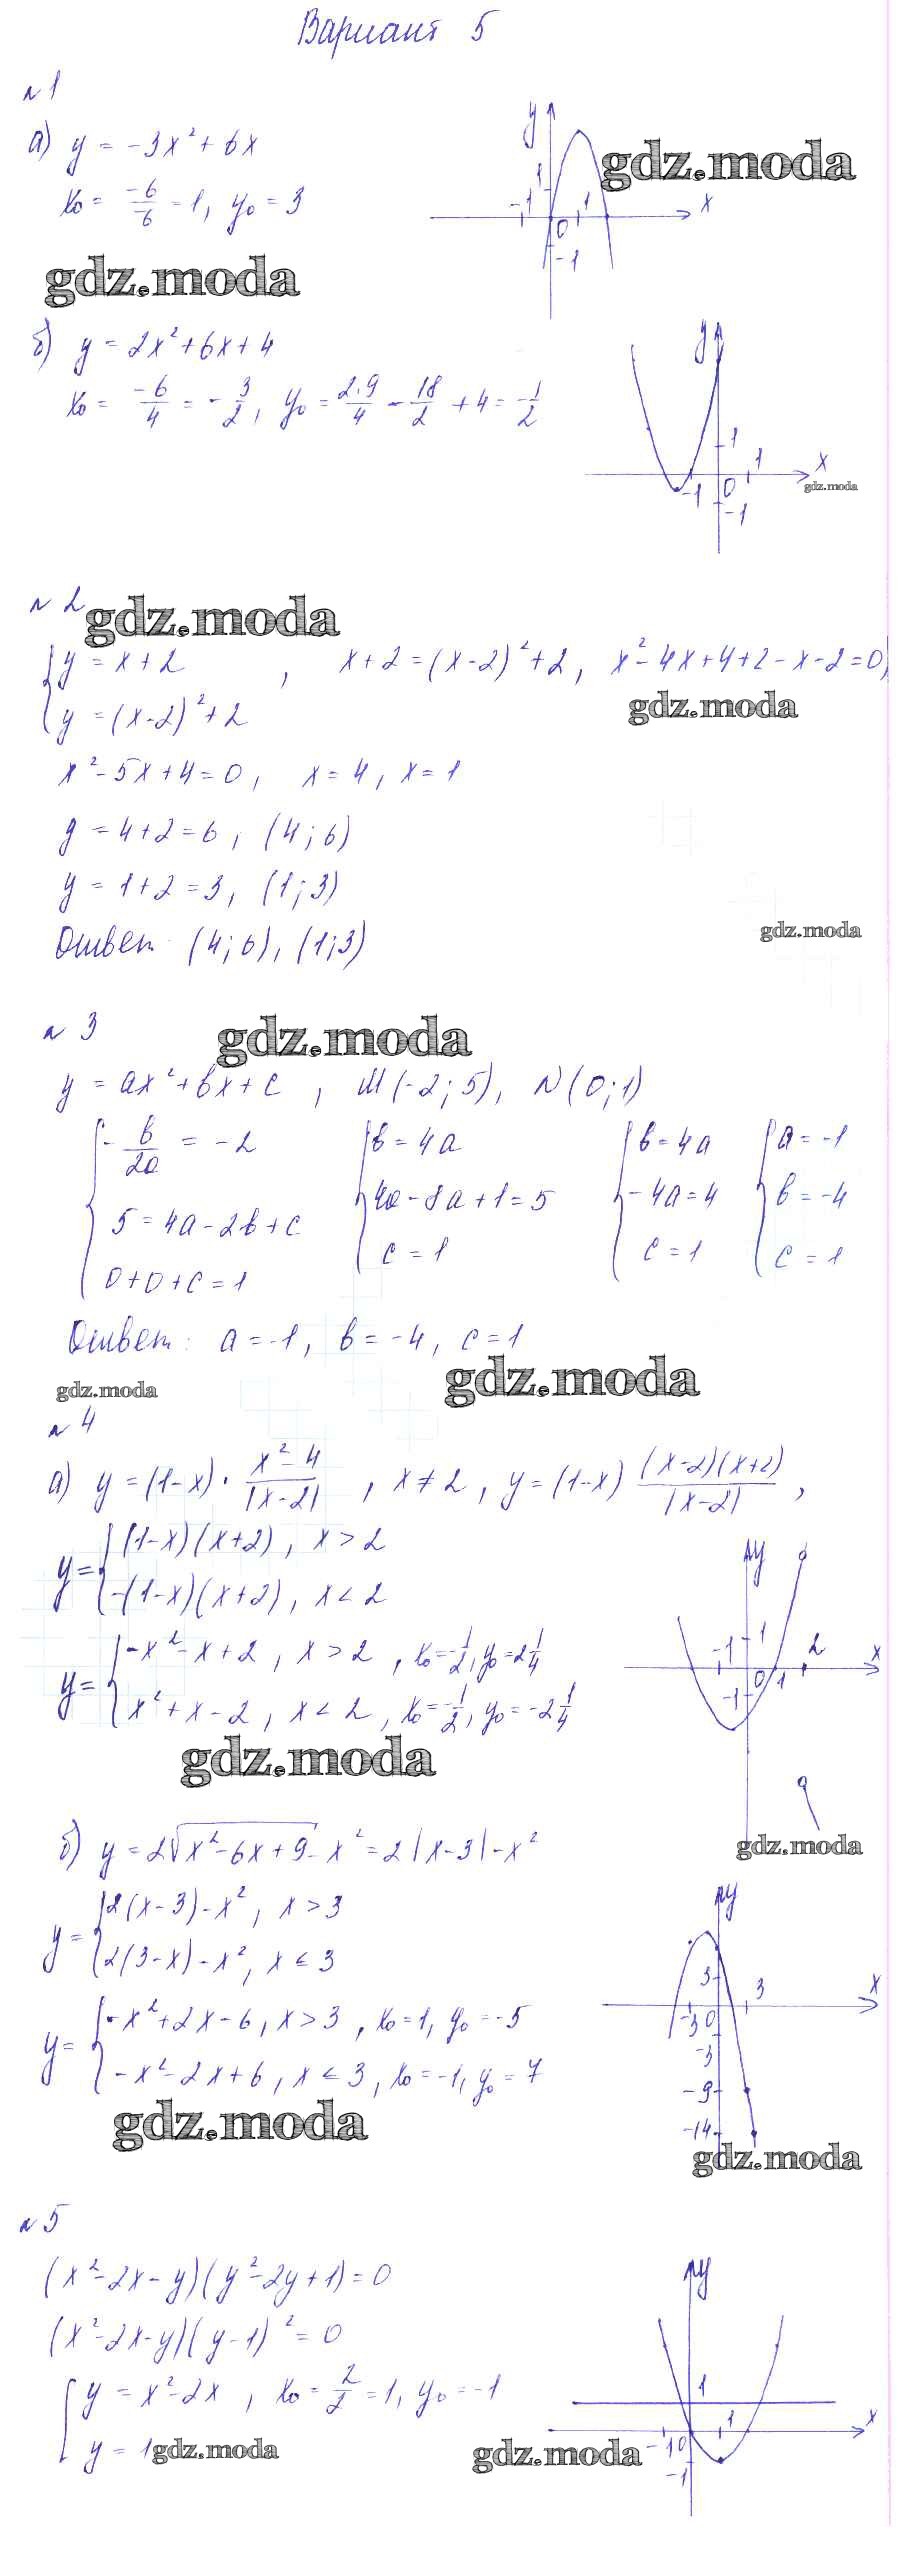 Вариант 5
№1
а) y = -3x² + 6x
x₀ = -6/-6 = 1, y₀ = 3
y
1
-1
0
1
x
-1
gdz.moda
gdz.moda
б) y = 2x² + 6x + 4
x₀ = -6/4 = -3/2, y₀ = 2·9/4 - 18/2 + 4 = -1/2
y
1
-1
0
1
x
-1
gdz.moda
№2
gdz.moda
{ y = x + 2
y = (x-2)² + 2 , x + 2 = (x-2)² + 2, x² - 4x + 4 + 2 - x - 2 = 0,
gdz.moda
x² - 5x + 4 = 0, x = 4, x = 1
y = 4 + 2 = 6, (4; 6)
y = 1 + 2 = 3, (1; 3)
Ответ: (4; 6), (1; 3)
gdz.moda
№3
gdz.moda
y = ax² + bx + c, M(-2; 5), N(0; 1)
{ -b/2a = -2 { b = 4a { b = 4a { a = -1
5 = 4a - 2b + c 4a - 8a + 1 = 5 -4a = 4 b = -4
0 + 0 + c = 1 c = 1 c = 1 c = 1
Ответ: a = -1, b = -4, c = 1
gdz.moda
gdz.moda
№4
а) y = (1-x) · (x² - 4)/|x-2|, x ≠ 2, y = (1-x) (x-2)(x+2)/|x-2|,
y = { (1-x)(x+2), x > 2
-(1-x)(x+2), x < 2
y = { -x² - x + 2, x > 2, x₀ = -1/2, y₀ = 2 1/4
x² + x - 2, x < 2, x₀ = -1/2, y₀ = -2 1/4
y
1
-1
0
1
2
x
-1
gdz.moda
gdz.moda
б) y = 2√(x² - 6x + 9) - x² = 2|x-3| - x²
y = { 2(x-3) - x², x > 3
2(3-x) - x², x ≤ 3
y = { -x² + 2x - 6, x > 3, x₀ = 1, y₀ = -5
-x² - 2x + 6, x ≤ 3, x₀ = -1, y₀ = 7
y
3
-3
0
3
x
-3
-9
-14
gdz.moda
gdz.moda
№5
(x² - 2x - y)(y² - 2y + 1) = 0
(x² - 2x - y)(y - 1)² = 0
[ y = x² - 2x, x₀ = 2/2 = 1, y₀ = -1
y = 1
gdz.moda
gdz.moda
y
1
-1
0
1
x
-1